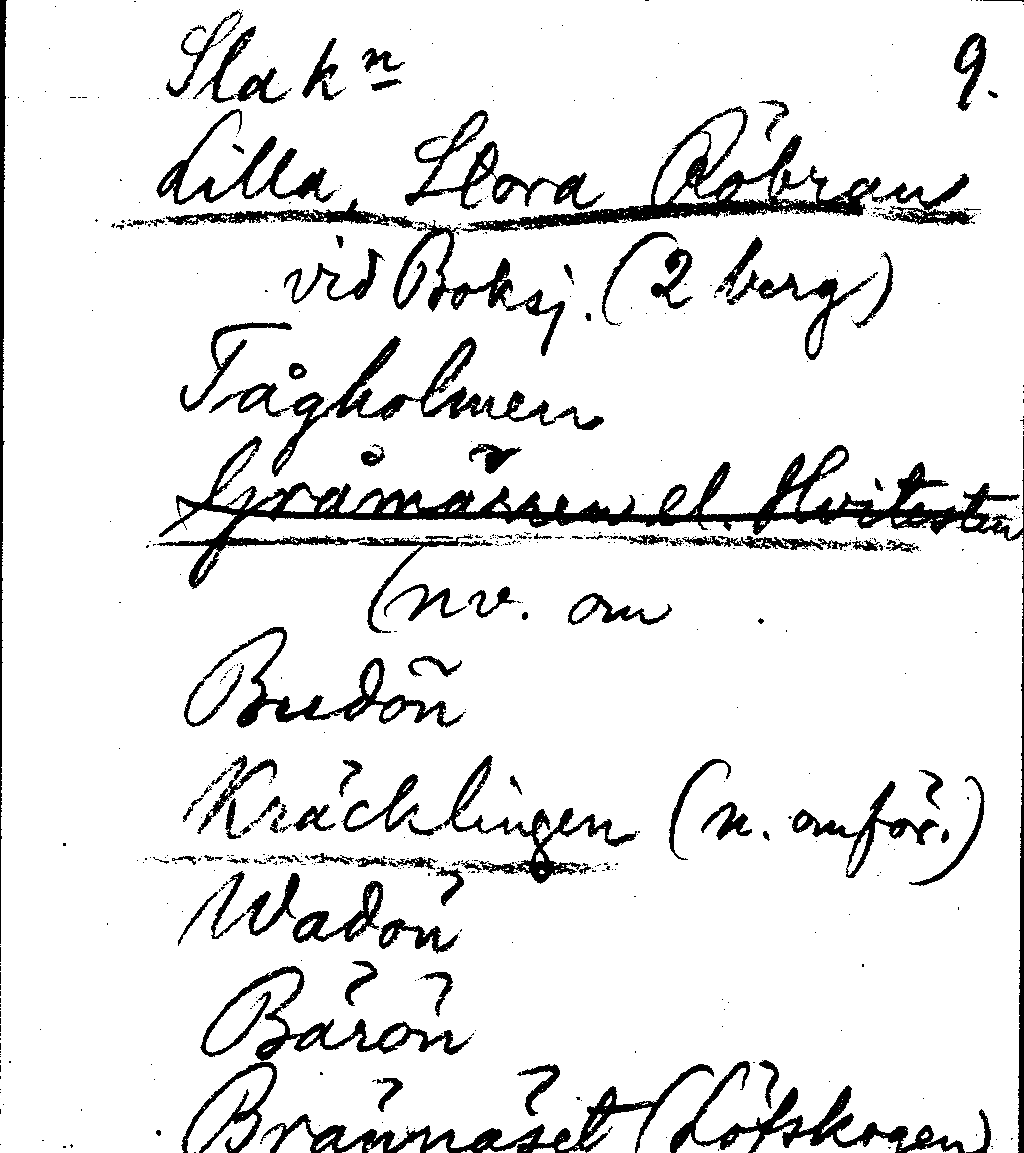 Slak<u>n</u> 9.
Lilla, Stora Röbran
vid Boksj. (2 berg)
Tågholmen
Gråmässen el. Hvitesten
(nv. om
Budön
Kräcklingen (n. omför.)
Wadön
Bärön
Brännäset (Löfskogen)